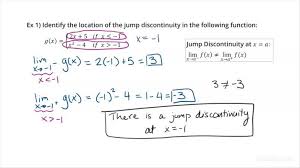 Ex 1) Identify the location of the jump discontinuity in the following function:
g(x) = { 2x + 5 if x < -1
x² - 4 if x > -1
x = -1
Jump Discontinuity at x = a:
lim f(x) ≠ lim f(x)
x→a⁻ x→a⁺
lim g(x) = 2(-1) + 5 = 3
x→-1⁻
x < -1
3 ≠ -3
lim g(x) = (-1)² - 4 = 1 - 4 = -3
x→-1⁺
x > -1
There is a jump discontinuity
at x = -1